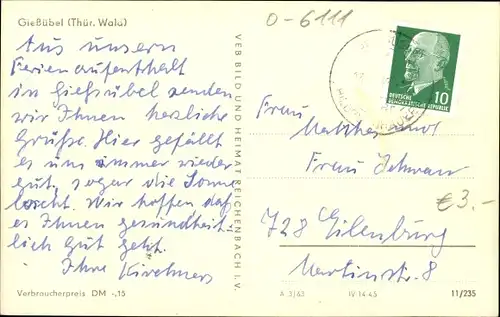 Gießübel (Thür. Wald)
O-6111
Aus unsern
Ferienaufenthalt
in Gießübel senden
wir Ihnen herzliche
Grüße. Hier gefällt
es uns immer wieder
gut, sogar die Sonne
lacht. Wir hoffen daß
es Ihnen gesundheit-
lich gut geht.
Ihre Kirchners
Verbraucherpreis DM -,15
VEB BILD UND HEIMAT REICHENBACH I. V.
DEUTSCHE
DEMOKRATISCHE REPUBLIK
10
Frau
und
Frau
€ 3.-
728 Eilenburg
Martinstr. 8
A 3/63 IV-14-45 11/235